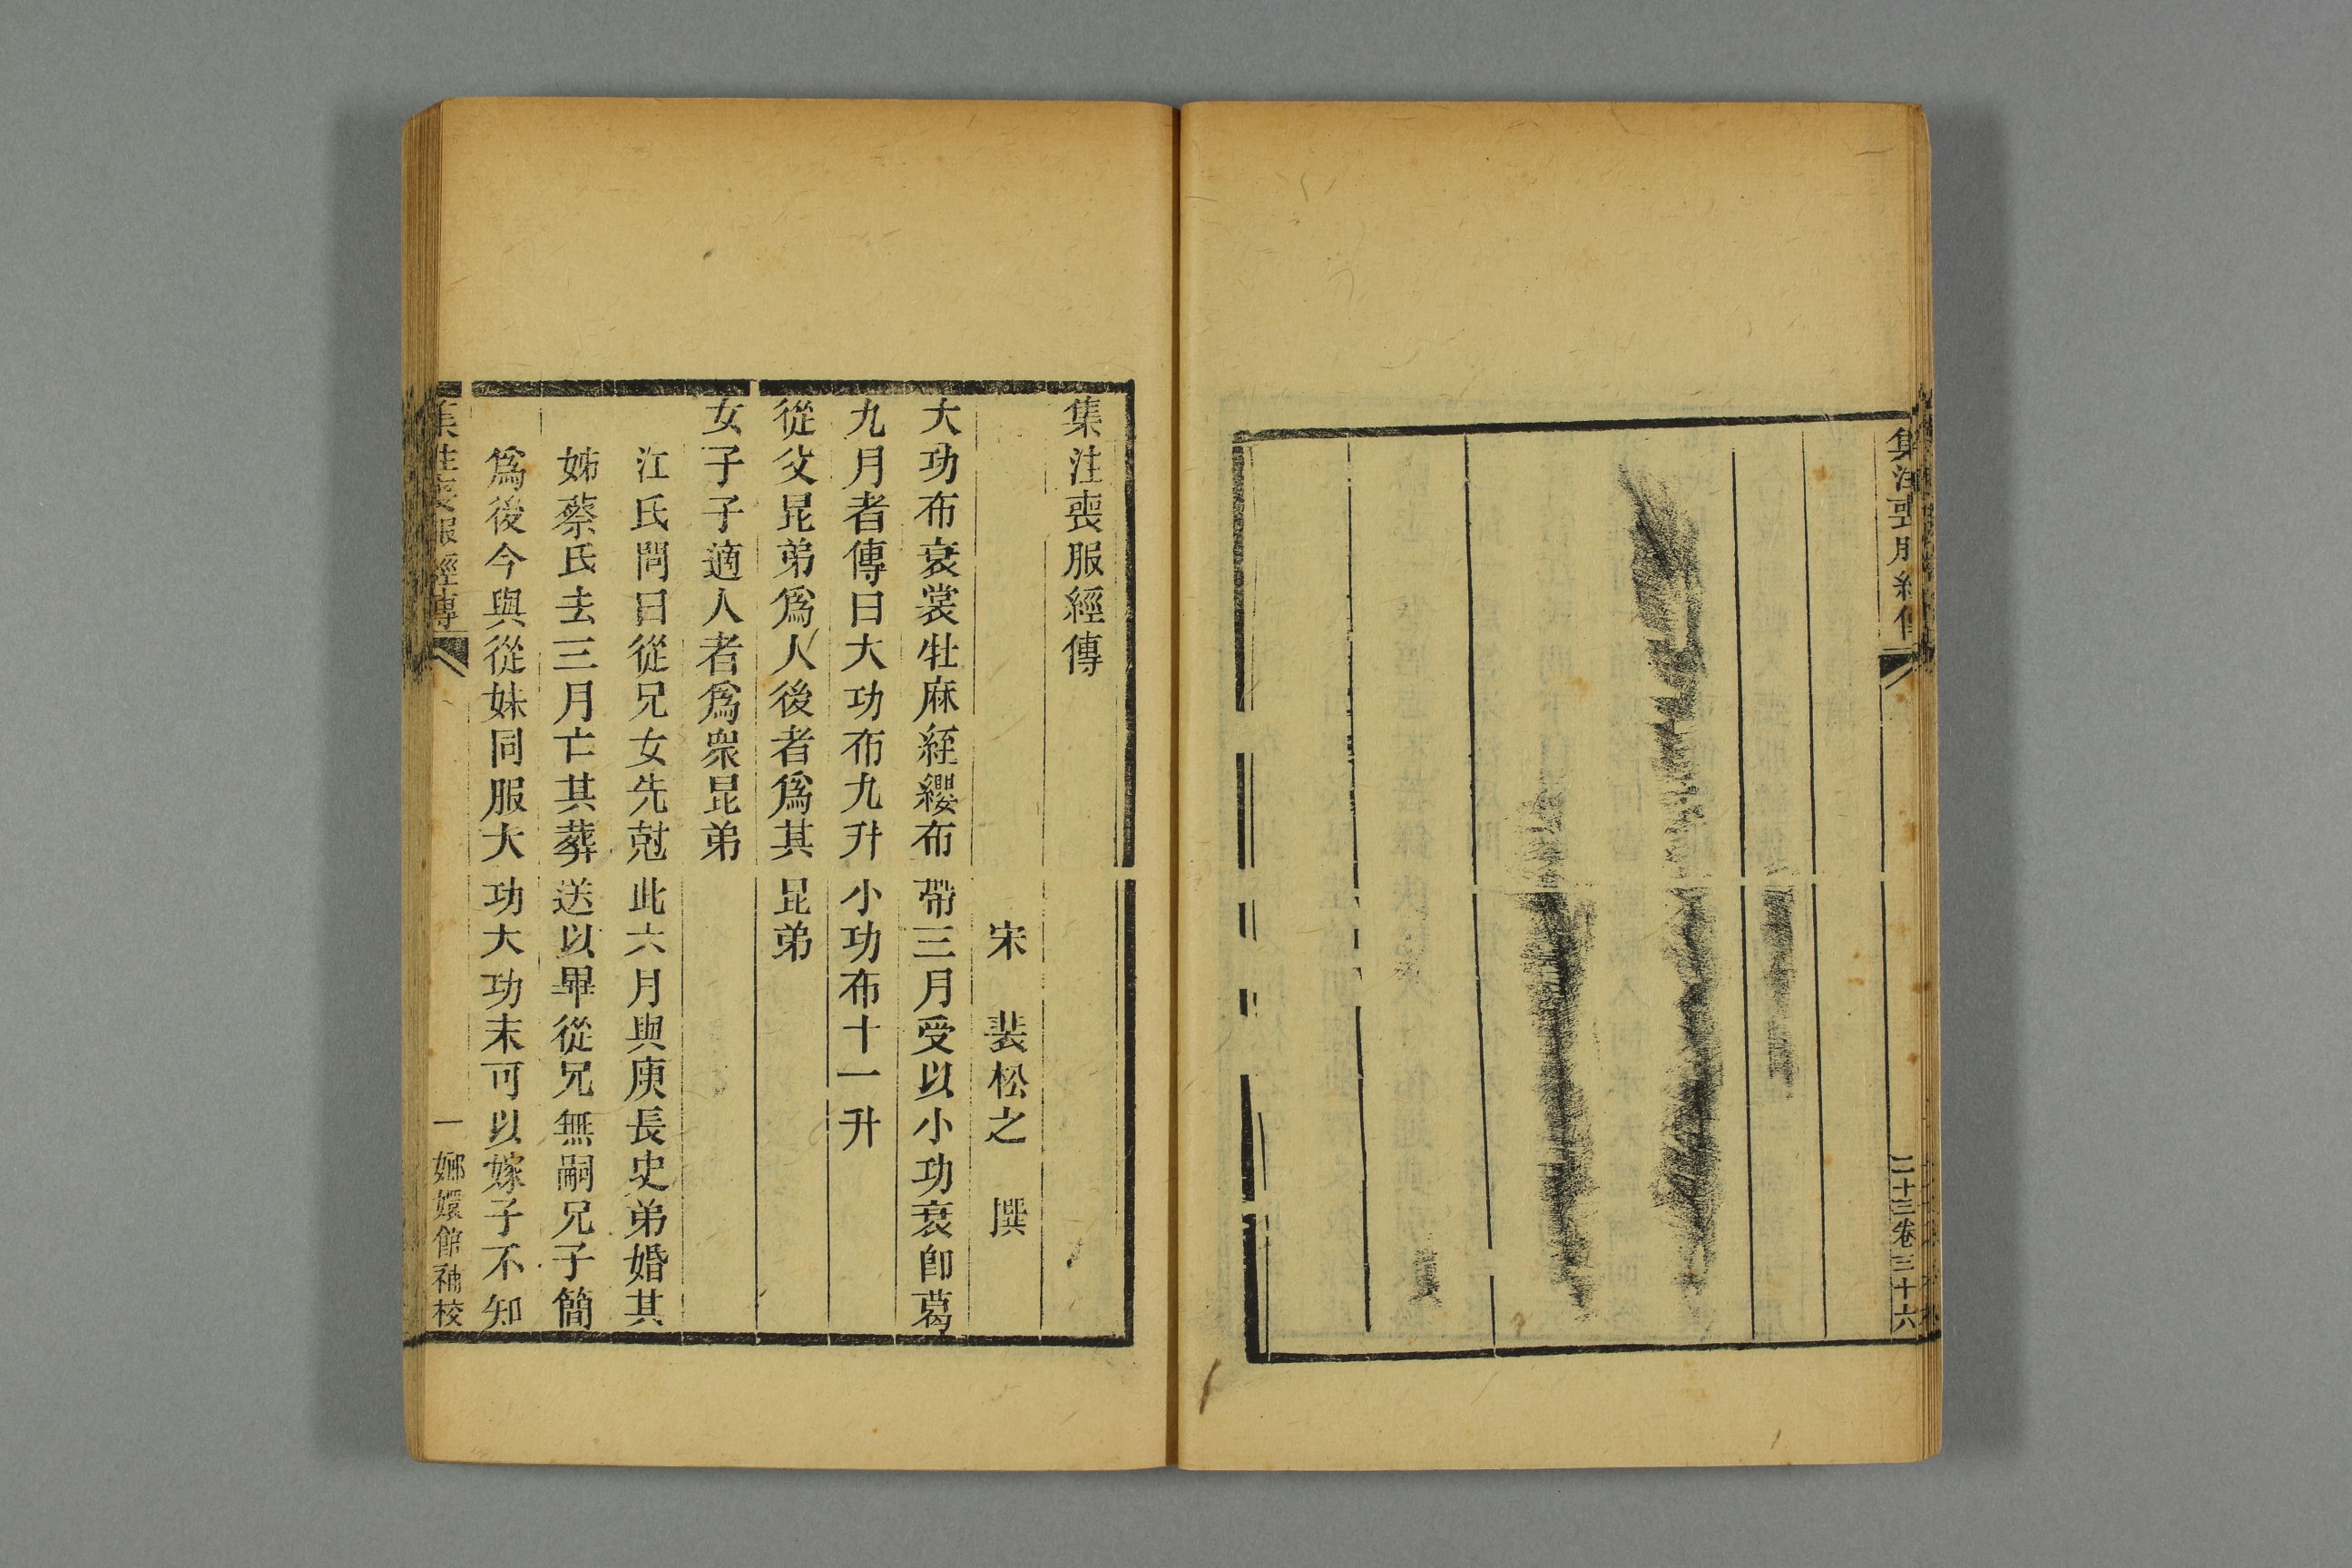 集注喪服經傳
二十三卷三十六
集注喪服經傳
宋 裴松之 撰
大功布衰裳牡麻絰纓布帶三月受以小功衰卽葛
九月者傳曰大功布九升小功布十一升
從父昆弟爲人後者爲其昆弟
女子子適人者爲衆昆弟
江氏問曰從兄女先尅此六月與庾長史弟婚其
姊蔡氏去三月亡其葬送以畢從兄無嗣兄子簡
爲後今與從妹同服大功大功末可以嫁子不知
集注喪服經傳
一
嫏嬛館補校